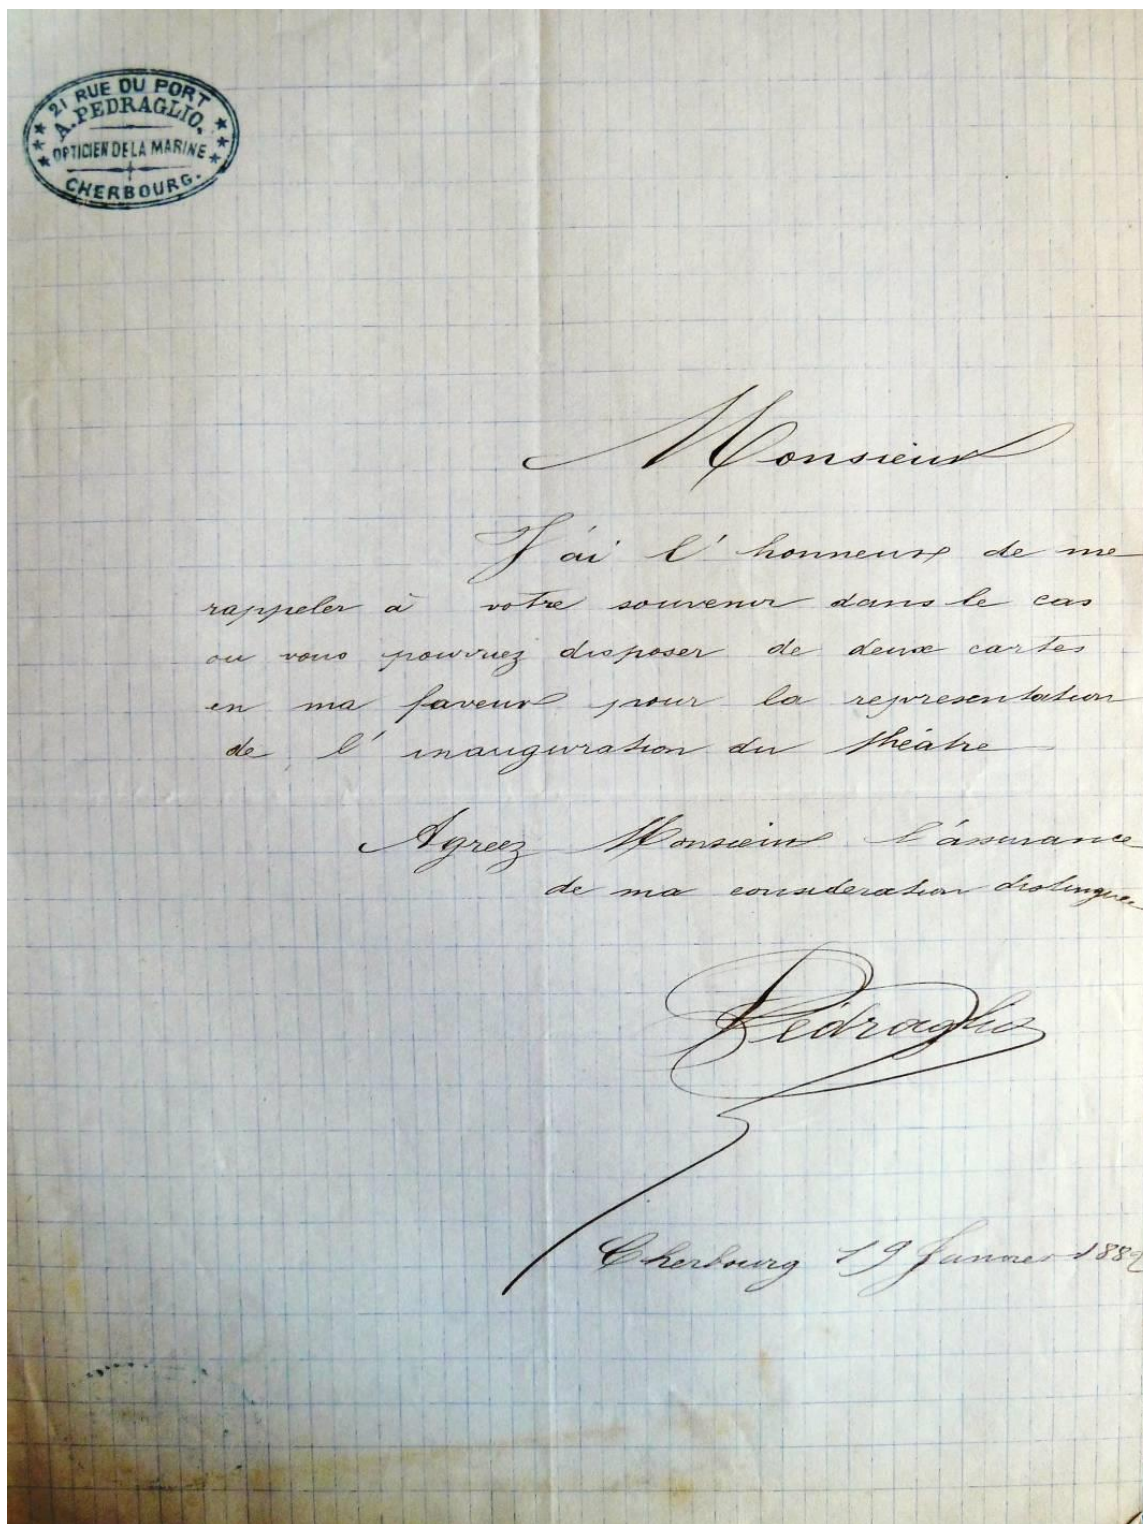 21 RUE DU PORT
A. PEDRAGLIO.
OPTICIEN DE LA MARINE
CHERBOURG.
Monsieur
J'ai l'honneur de me
rappeler à votre souvenir dans le cas
ou vous pourriez disposer de deux cartes
en ma faveur pour la representation
de l'inauguration du théatre
Agreez Monsieur l'assurance
de ma consideration distinguée
Pédraglio
Cherbourg 19 Janvier 1882